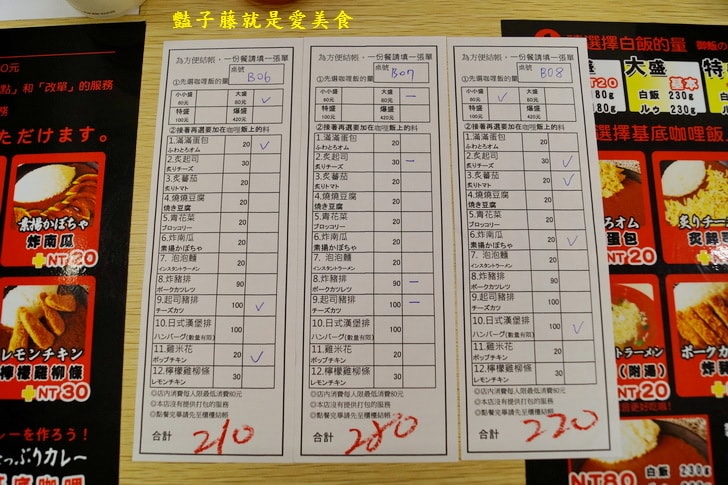 豔子藤就是愛美食
為方便結帳，一份餐請填一張單
桌號
B06
①先選咖哩飯的量
小小盛
60元
大盛
80元
特盛
100元
爆盛
420元
②接著再選要加在咖哩飯上的料
1.滿滿蛋包
ふわとろオム
20
2.炙起司
炙りチーズ
30
3.炙蕃茄
炙りトマト
20
4.燒燒豆腐
焼き豆腐
20
5.青花菜
ブロッコリー
20
6.炸南瓜
素揚かぼちゃ
20
7. 泡泡麵
インスタントラーメン
20
8.炸豬排
ポークカツレツ
90
9.起司豬排
チーズカツ
100
10.日式漢堡排
ハンバーグ(數量有限)
100
11.雞米花
ポップチキン
20
12.檸檬雞柳條
レモンチキン
30
◎店內消費每人最低消費80元
◎本店沒有提供打包的服務
◎點餐完畢請先至櫃檯結帳
合計
210
為方便結帳，一份餐請填一張單
桌號
B07
①先選咖哩飯的量
小小盛
60元
大盛
80元
特盛
100元
爆盛
420元
②接著再選要加在咖哩飯上的料
1.滿滿蛋包
ふわとろオム
20
2.炙起司
炙りチーズ
30
3.炙蕃茄
炙りトマト
20
4.燒燒豆腐
焼き豆腐
20
5.青花菜
ブロッコリー
20
6.炸南瓜
素揚かぼちゃ
20
7. 泡泡麵
インスタントラーメン
20
8.炸豬排
ポークカツレツ
90
9.起司豬排
チーズカツ
100
10.日式漢堡排
ハンバーグ(數量有限)
100
11.雞米花
ポップチキン
20
12.檸檬雞柳條
レモンチキン
30
◎店內消費每人最低消費80元
◎本店沒有提供打包的服務
◎點餐完畢請先至櫃檯結帳
合計
280
為方便結帳，一份餐請填一張單
桌號
B08
①先選咖哩飯的量
小小盛
60元
大盛
80元
特盛
100元
爆盛
420元
②接著再選要加在咖哩飯上的料
1.滿滿蛋包
ふわとろオム
20
2.炙起司
炙りチーズ
30
3.炙蕃茄
炙りトマト
20
4.燒燒豆腐
焼き豆腐
20
5.青花菜
ブロッコリー
20
6.炸南瓜
素揚かぼちゃ
20
7. 泡泡麵
インスタントラーメン
20
8.炸豬排
ポークカツレツ
90
9.起司豬排
チーズカツ
100
10.日式漢堡排
ハンバーグ(數量有限)
100
11.雞米花
ポップチキン
20
12.檸檬雞柳條
レモンチキン
30
◎店內消費每人最低消費80元
◎本店沒有提供打包的服務
◎點餐完畢請先至櫃檯結帳
合計
220
點」和「改單」的服務
ただけます。
素揚かぼちゃ
炸南瓜
+NT 20
レモンチキン
檸檬雞柳條
+NT 30
レーを作ろう！
たっぷりカレー
選擇白飯的量
大盛
特
基本
白飯 230g
選擇基底咖哩飯
ろオム
蛋包
NT 20
炙りチー
NT
ラーメン
(附湯)
NT 20
ポークカ
NT80
白飯 230g